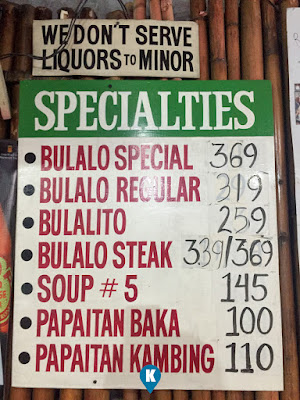 WE DON'T SERVE
LIQUORS TO MINOR
SPECIALTIES
BULALO SPECIAL 369
BULALO REGULAR 319
BULALITO 259
BULALO STEAK 339/369
SOUP # 5 145
PAPAITAN BAKA 100
PAPAITAN KAMBING 110
K